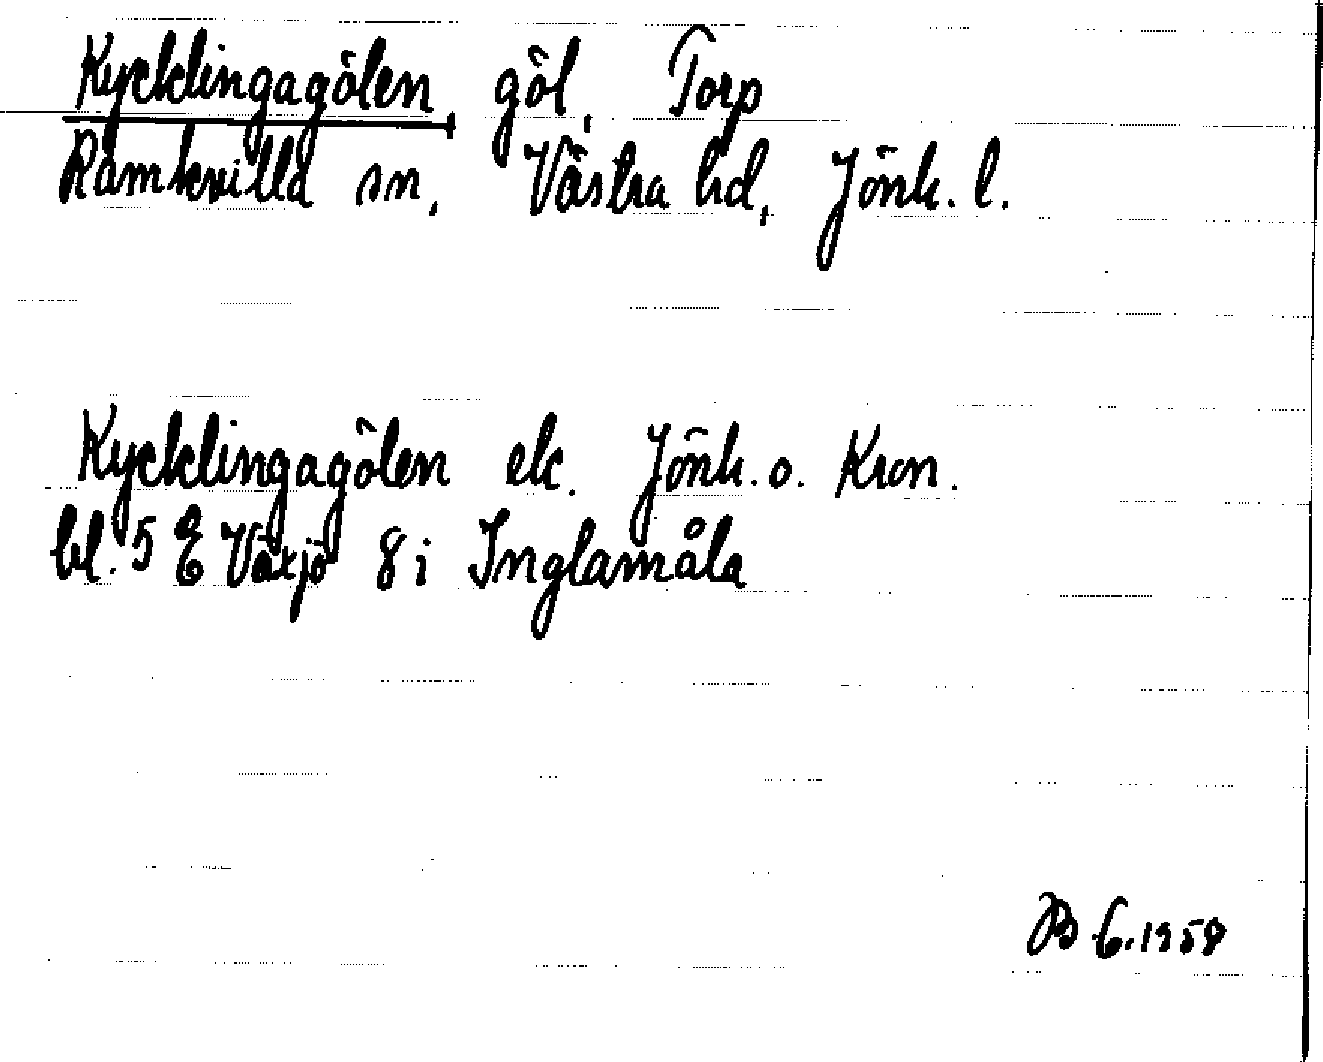 Kycklingagölen, göl, Torp
Ramkvilla sn, Västra hd, Jönk. l.
Kycklingagölen ek. Jönk. o. Kron.
bl. 5 E Växjö 8 i Inglamåla
B 6.1958